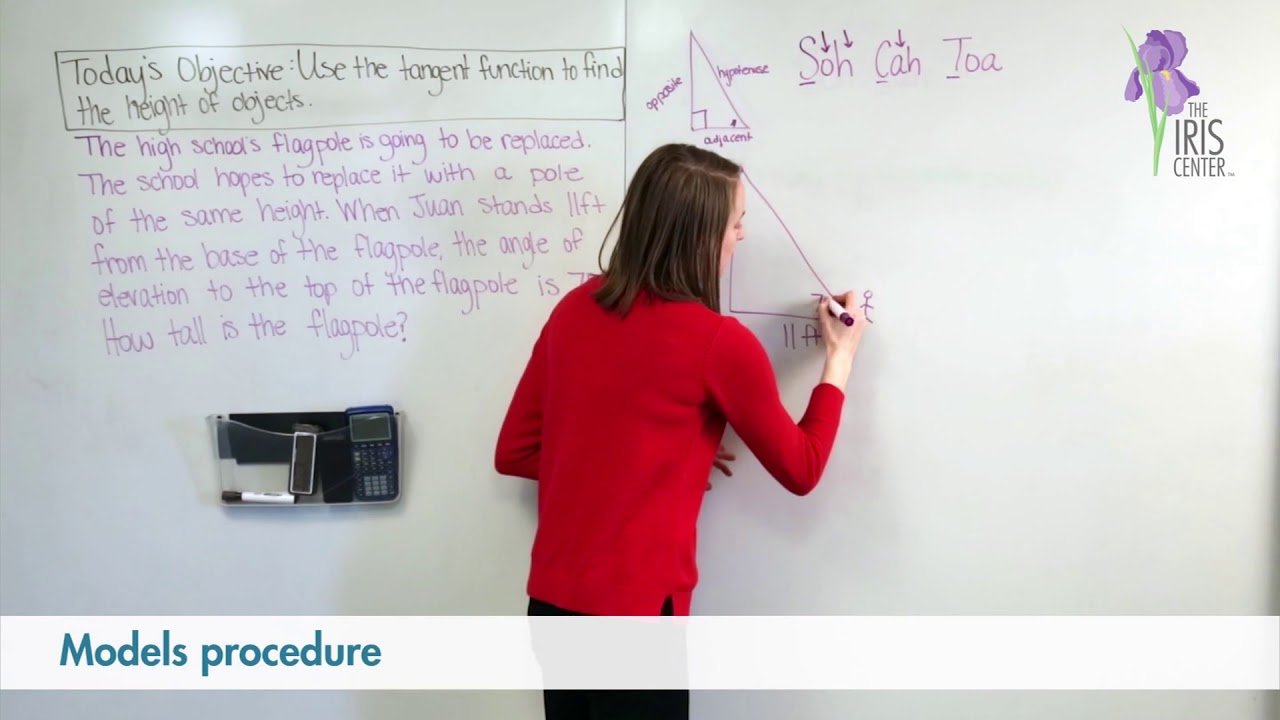 Today's Objective: Use the tangent function to find
the height of objects.
The high school's flagpole is going to be replaced.
The school hopes to replace it with a pole
of the same height. When Juan stands 11ft
from the base of the flagpole, the angle of
elevation to the top of the flagpole is
How tall is the flagpole?
opposite
hypotenuse
adjacent
Soh Cah Toa
11 ft
THE
IRIS
CENTER
Models procedure